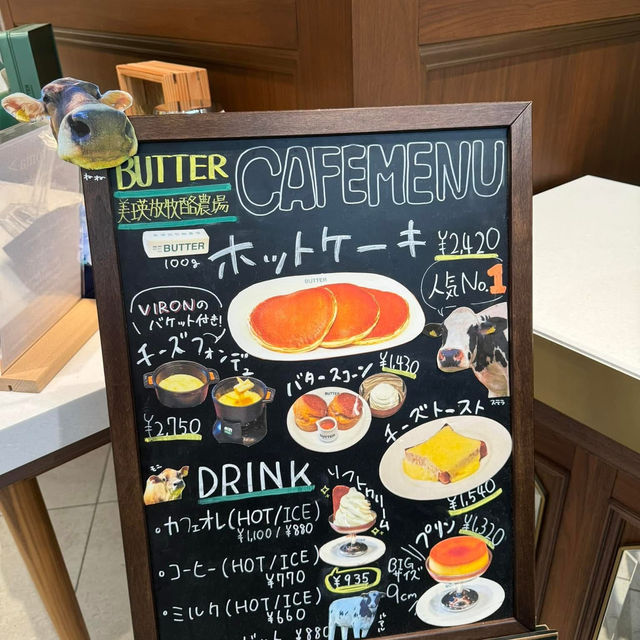 BUTTER
美瑛放牧酪農場
CAFEMENU
BUTTER
100g
ホットケーキ
¥2,420
人気No.1
BUTTER
VIRONの
バケット付き!
チーズフォンデュ
¥2,750
バタースコーン
¥1,430
チーズトースト
¥1,540
DRINK
・カフェオレ(HOT/ICE)
¥1,100/¥880
・コーヒー(HOT/ICE)
¥770
・ミルク(HOT/ICE)
¥660
¥880
ソフトクリーム
¥935
プリン
¥1,320
BIG
サイズ
9cm